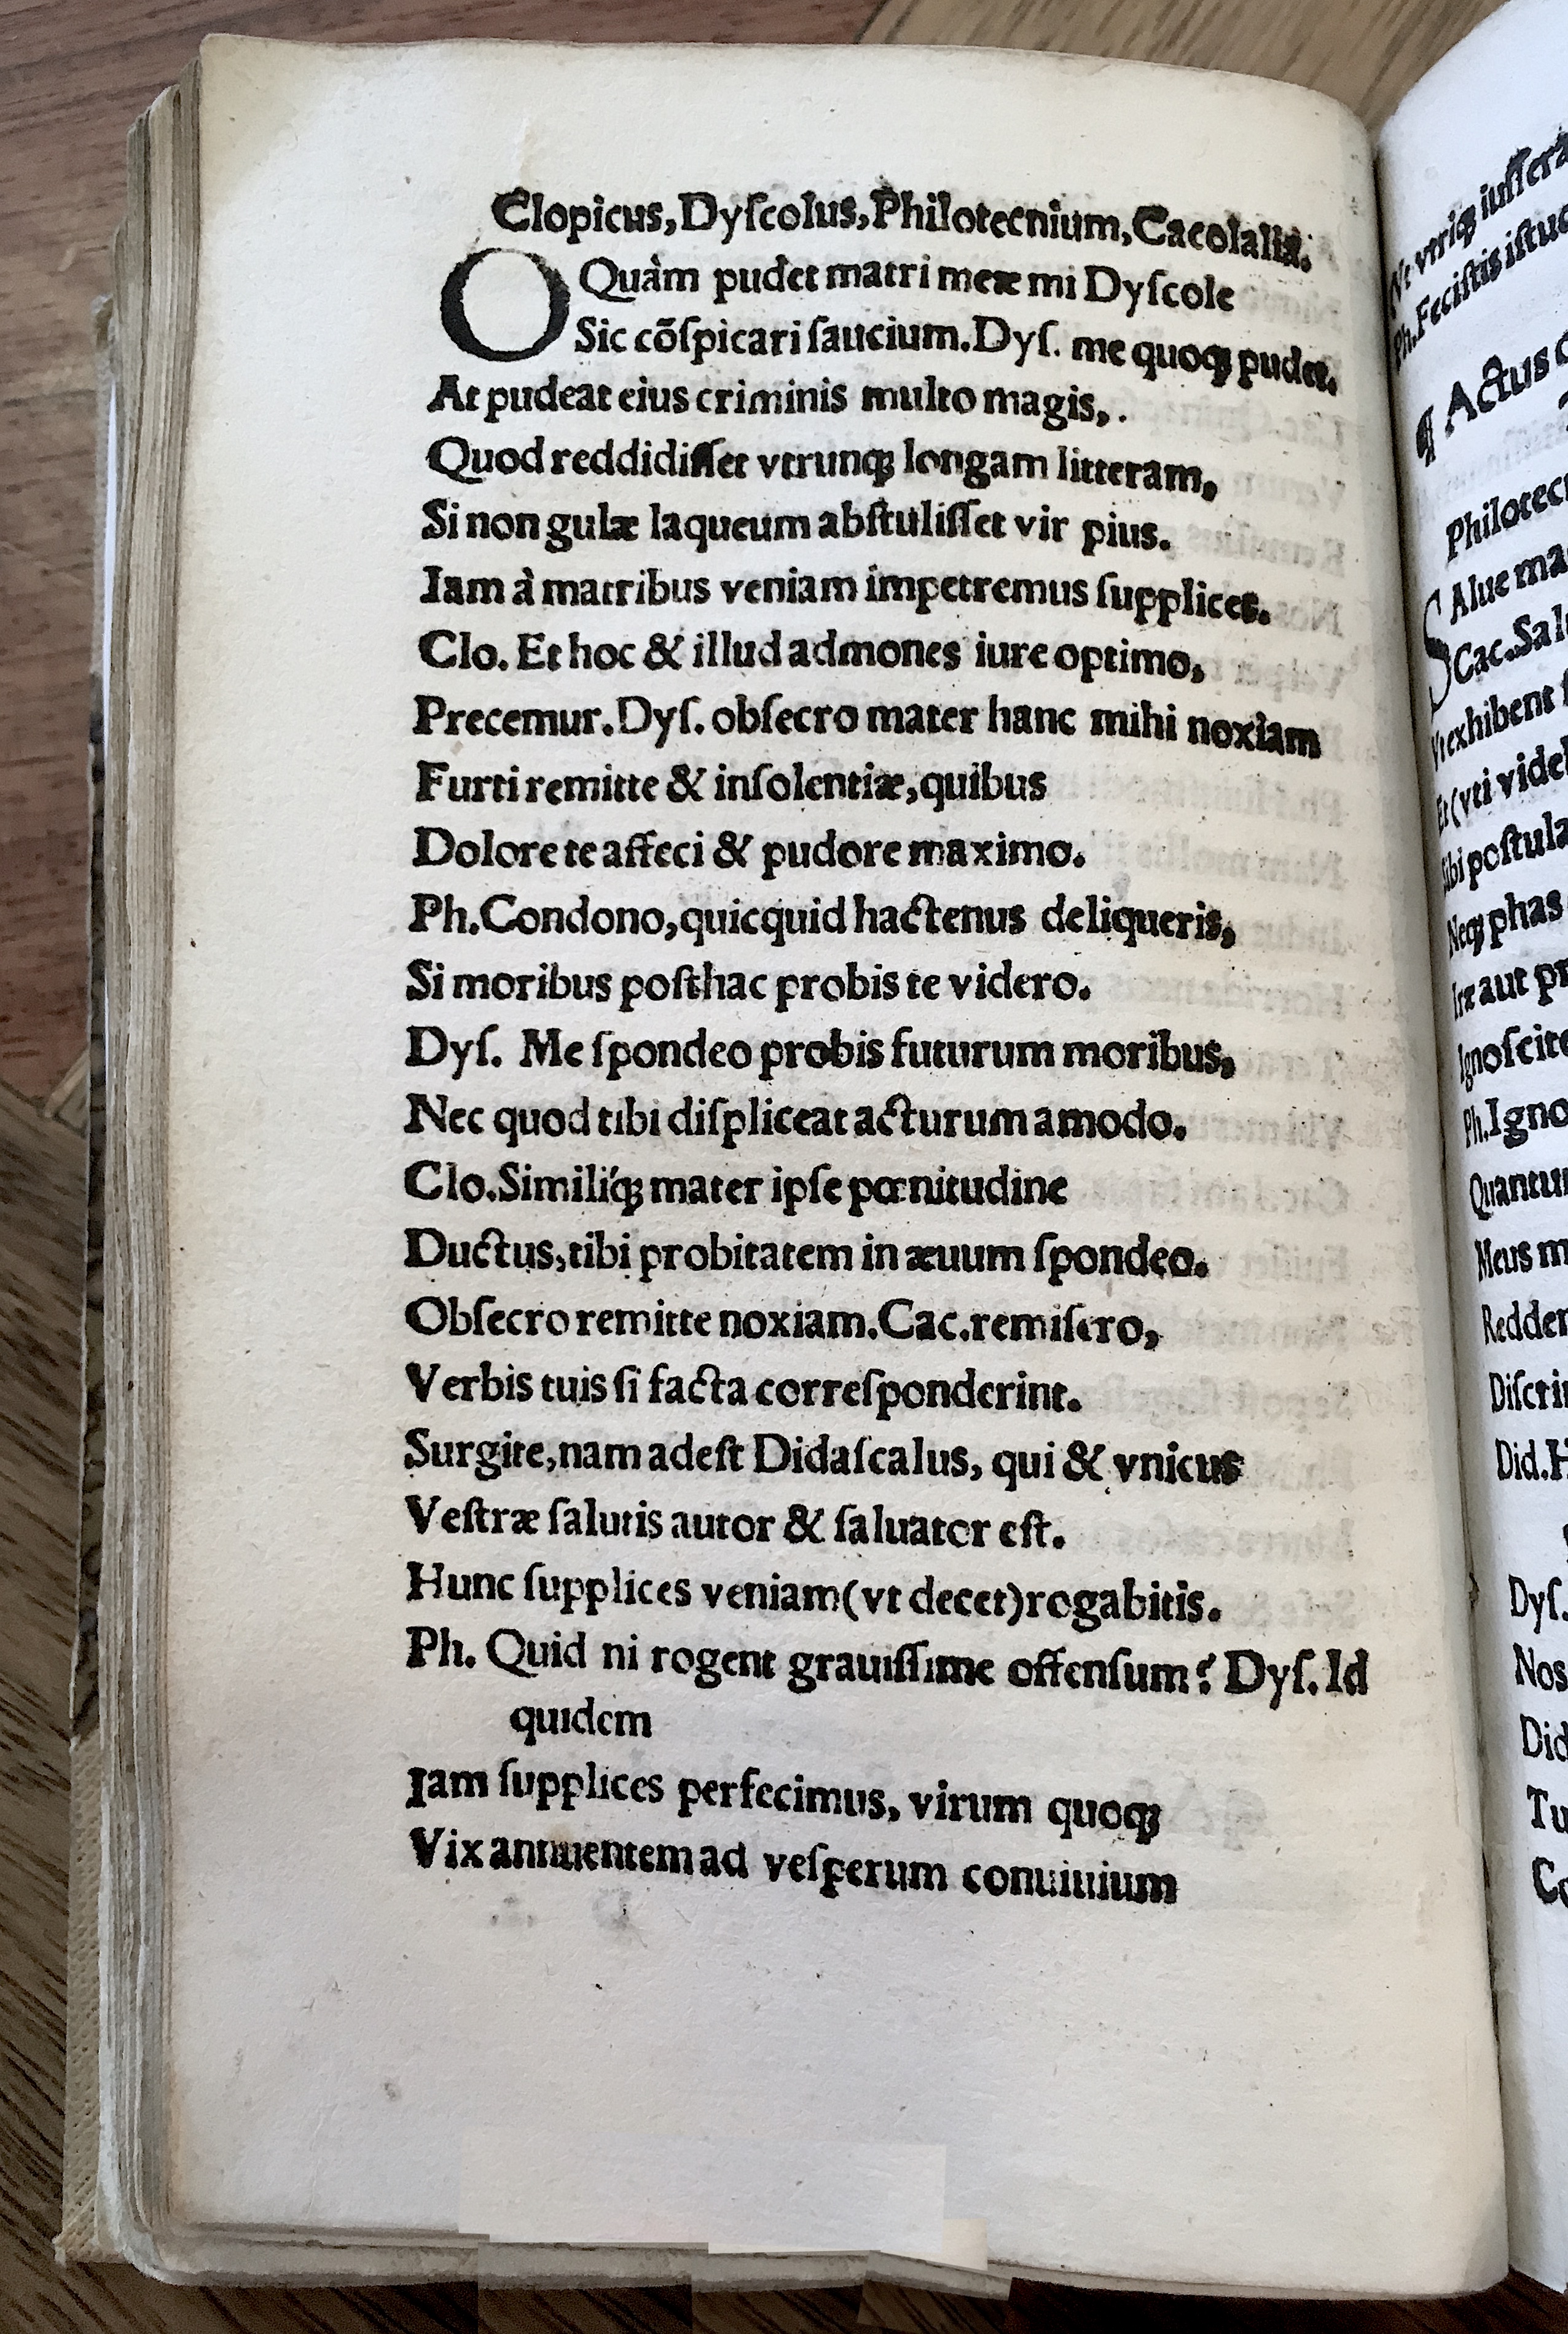 Clopicus, Dyſcolus, Philotecnium, Cacolalia.
O Quàm pudet matri meæ mi Dyſcole
Sic cõſpicari ſaucium. Dyſ. me quoqꝫ pudet.
At pudeat eius criminis multo magis,.
Quod reddidiſſet vtrunqꝫ longam litteram,
Si non gulæ laqueum abſtuliſſet vir pius.
Iam à matribus veniam impetremus ſupplices.
Clo. Et hoc & illud admones iure optimo,
Precemur. Dyſ. obſecro mater hanc mihi noxiam
Furti remitte & inſolentiæ, quibus
Dolore te affeci & pudore maximo.
Ph. Condono, quicquid hactenus deliqueris,
Si moribus poſthac probis te videro.
Dyſ. Me ſpondeo probis futurum moribus,
Nec quod tibi diſpliceat acturum amodo.
Clo. Similíqꝫ mater ipſe pœnitudine
Ductus, tibi probitatem in æuum ſpondeo.
Obſecro remitte noxiam. Cac. remiſero,
Verbis tuis ſi facta correſponderint.
Surgite, nam adeſt Didaſcalus, qui & vnicus
Veſtræ ſalutis autor & ſaluator eſt.
Hunc ſupplices veniam (vt decet) rogabitis.
Ph. Quid ni rogent grauiſſime offenſum? Dyſ. Id
quidem
Iam ſupplices perfecimus, virum quoqꝫ
Vix annuentem ad veſperum conuiuium
Ph. Feciſtis iſtuc
¶ Actus
Philotec
SAlue ma
Cac. Salu
Vt exhibent
Et (vti videl
Sibi poſtula
Neqꝫ phas
Iræ aut pr
Ignoſcite
Ph. Igno
Quantu
Meus m
Redder
Diſcri
Did. H
Dyſ.
Nos
Did
Tu
Co